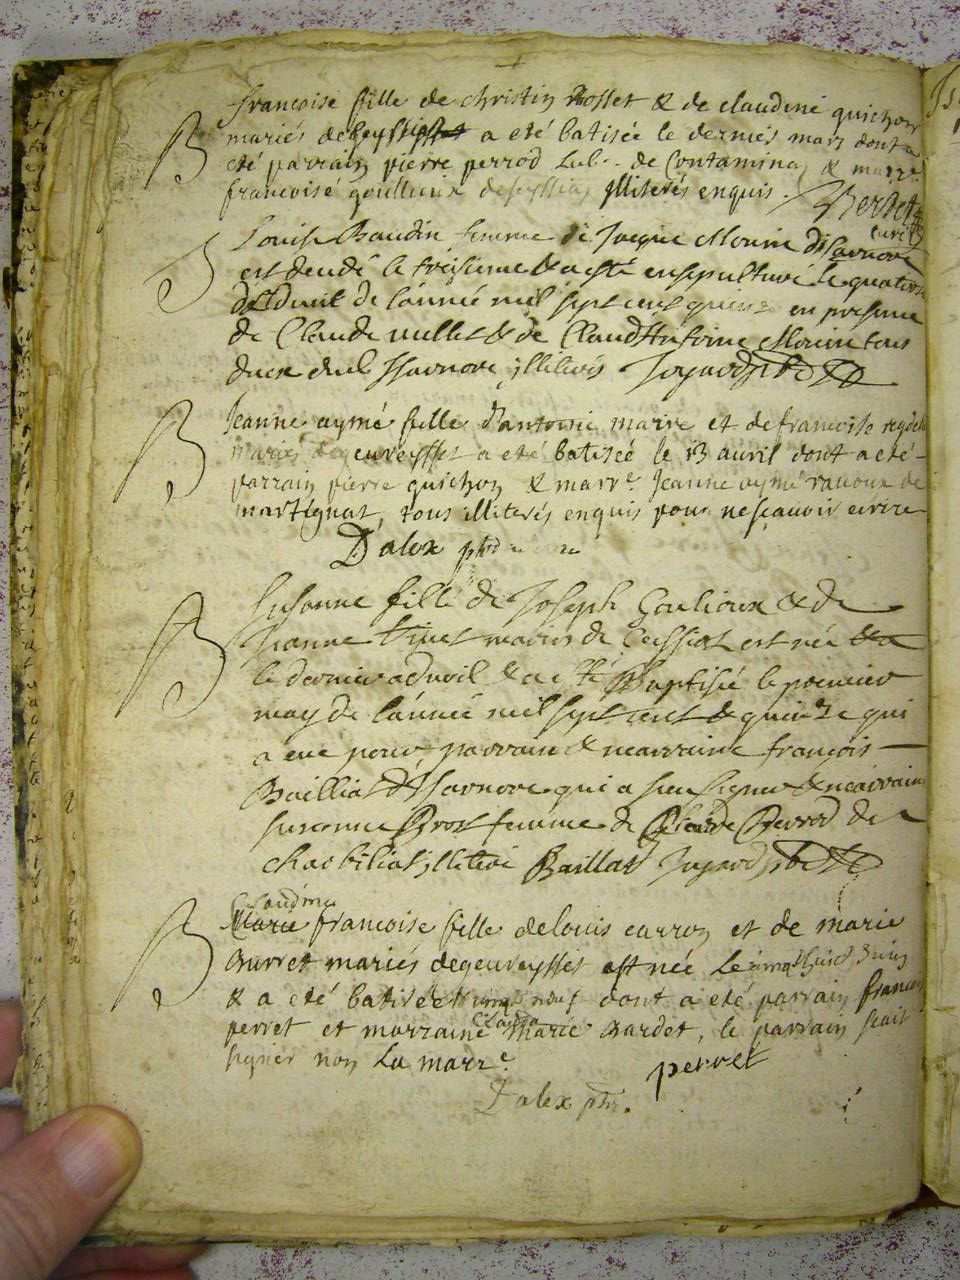 francoise fille de christin Rosset & de claudine guichon
B mariés de ceyssiat a eté batisée le dernier mars dont a
eté parrain pierre perrod Lab. de Contamina & marr.e
francoise goullieux de ceyssia illiterés enquis. Berset
curé
S Louise Baudin femme de Jacque Morin d'Isarnore
est decedé le troisieme & a esté ensepulturé le quatorze
d'avril de l'année mil sept cent quinze en presence
de Claude millet & de Claud Antoine Morin tous
deux dud Isarnore illiterés Joyard pbtre
B Jeanne aymé fille d'antoine maire et de francoise
mariés de geuvreysset a eté batisée le 13 avril dont a eté
parrain pierre guichon & marr.e Jeanne aymé ravoux de
martignat, tous illiterés enquis pour ne scavoir ecrire
D'alex ptre
B Susanne fille de Joseph Goulioux & de
Jeanne mariés de Ceissiat est née & a
le dernier advril & a eté Baptisée le premier
may de l'année mil sept cent & quinze qui
a eue pour parrain & marraine françois
Bailliat d'Isarnore qui a sceu signer & marraine
susanne Brox femme de Claude Perrod de
charbilliat illiterée Baillat Joyard pbtre
Claudine
B Marie francoise fille de louis carron et de marie
Gurret mariés de geuvreysset est née Le vingthuict Juin
& a eté batisée le vingt neuf dont a eté parrain francois
Claudine
perret et marraine Marie Gardet, le parrain scait
signer non La marr.e
perret
Dalex ptre.